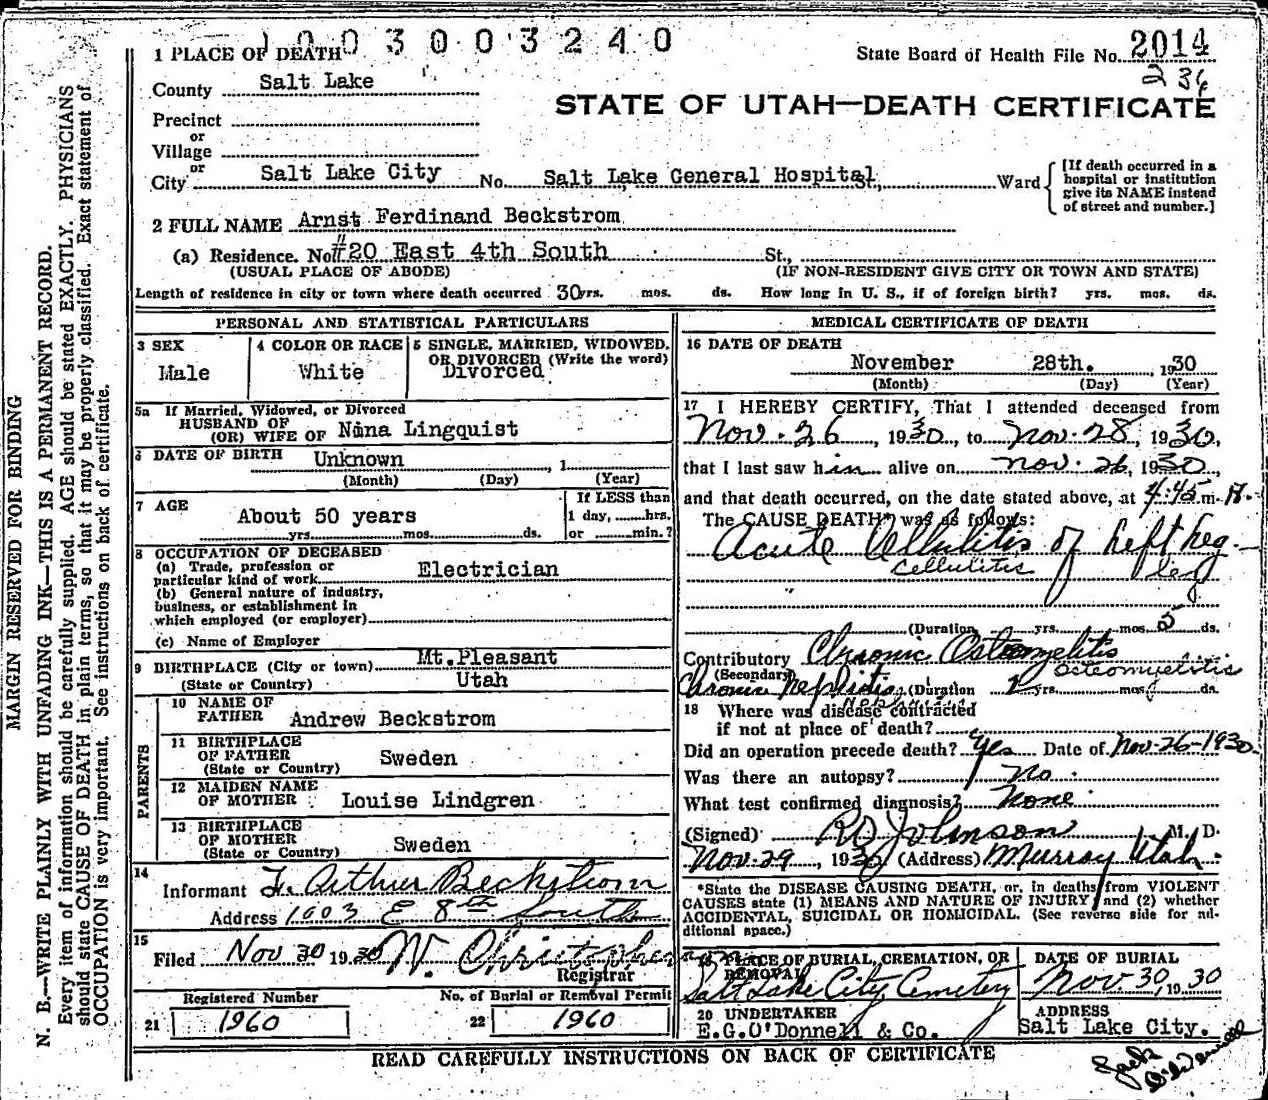 1003003240
1 PLACE OF DEATH
State Board of Health File No. 2014
236
County Salt Lake
STATE OF UTAH—DEATH CERTIFICATE
Precinct
or
Village
or
City Salt Lake City No. Salt Lake General Hospital St., Ward
[If death occurred in a hospital or institution give its NAME instead of street and number.]
2 FULL NAME Arnst Ferdinand Beckstrom
(a) Residence. No. #20 East 4th South St.,
(USUAL PLACE OF ABODE) (IF NON-RESIDENT GIVE CITY OR TOWN AND STATE)
Length of residence in city or town where death occurred 30 yrs. mos. ds. How long in U. S., if of foreign birth? yrs. mos. ds.
PERSONAL AND STATISTICAL PARTICULARS
3 SEX
Male
4 COLOR OR RACE
White
5 SINGLE, MARRIED, WIDOWED, OR DIVORCED (Write the word)
Divorced
5a If Married, Widowed, or Divorced
HUSBAND OF
(OR) WIFE OF Nana Lingquist
6 DATE OF BIRTH Unknown , 1
(Month) (Day) (Year)
7 AGE
About 50 years
yrs. mos. ds.
If LESS than
1 day, hrs.
or min.?
8 OCCUPATION OF DECEASED
(a) Trade, profession or
particular kind of work Electrician
(b) General nature of industry,
business, or establishment in
which employed (or employer)
(c) Name of Employer
9 BIRTHPLACE (City or town) Mt.Pleasant
(State or Country) Utah
PARENTS
10 NAME OF
FATHER Andrew Beckstrom
11 BIRTHPLACE
OF FATHER Sweden
(State or Country)
12 MAIDEN NAME
OF MOTHER Louise Lindgren
13 BIRTHPLACE
OF MOTHER Sweden
(State or Country)
14
Informant F. Arthur Beckstrom
Address 1003 E 8th South
15
Filed Nov 30 1930 W. Christopherson
Registrar
Registered Number
21 1960
No. of Burial or Removal Permit
22 1960
MEDICAL CERTIFICATE OF DEATH
16 DATE OF DEATH
November 28th. , 1930
(Month) (Day) (Year)
17 I HEREBY CERTIFY, That I attended deceased from
Nov. 26, 1930, to Nov. 28, 1930,
that I last saw him alive on Nov. 26, 1930,
and that death occurred, on the date stated above, at 4:45 m A.
The CAUSE DEATH* was as follows:
Acute Cellulitis of Left Leg.
Cellulitis leg
(Duration yrs. mos. 5 ds.
Contributory Chronic Osteomyelitis
(Secondary) Osteomyelitis
Chronic Nephritis (Duration yrs. mos. ds.
18 Where was disease contracted
if not at place of death?
Did an operation precede death? Yes Date of Nov-26-1930
Was there an autopsy? No.
What test confirmed diagnosis? None
(Signed) RD Johnson M. D.
Nov. 29, 1930 (Address) Murray Utah.
*State the DISEASE CAUSING DEATH, or, in deaths from VIOLENT
CAUSES state (1) MEANS AND NATURE OF INJURY, and (2) whether
ACCIDENTAL, SUICIDAL OR HOMICIDAL. (See reverse side for ad-
ditional space.)
19 PLACE OF BURIAL, CREMATION, OR
REMOVAL
Salt Lake City Cemetery
DATE OF BURIAL
Nov. 30, 1930
20 UNDERTAKER
E.G.O'Donnell & Co.
ADDRESS
Salt Lake City.
READ CAREFULLY INSTRUCTIONS ON BACK OF CERTIFICATE
Jack O'Donnell
MARGIN RESERVED FOR BINDING
N. B.—WRITE PLAINLY WITH UNFADING INK—THIS IS A PERMANENT RECORD.
Every item of information should be carefully supplied. AGE should be stated EXACTLY. PHYSICIANS
should state CAUSE OF DEATH in plain terms, so that it may be properly classified. Exact statement of
OCCUPATION is very important. See instructions on back of certificate.